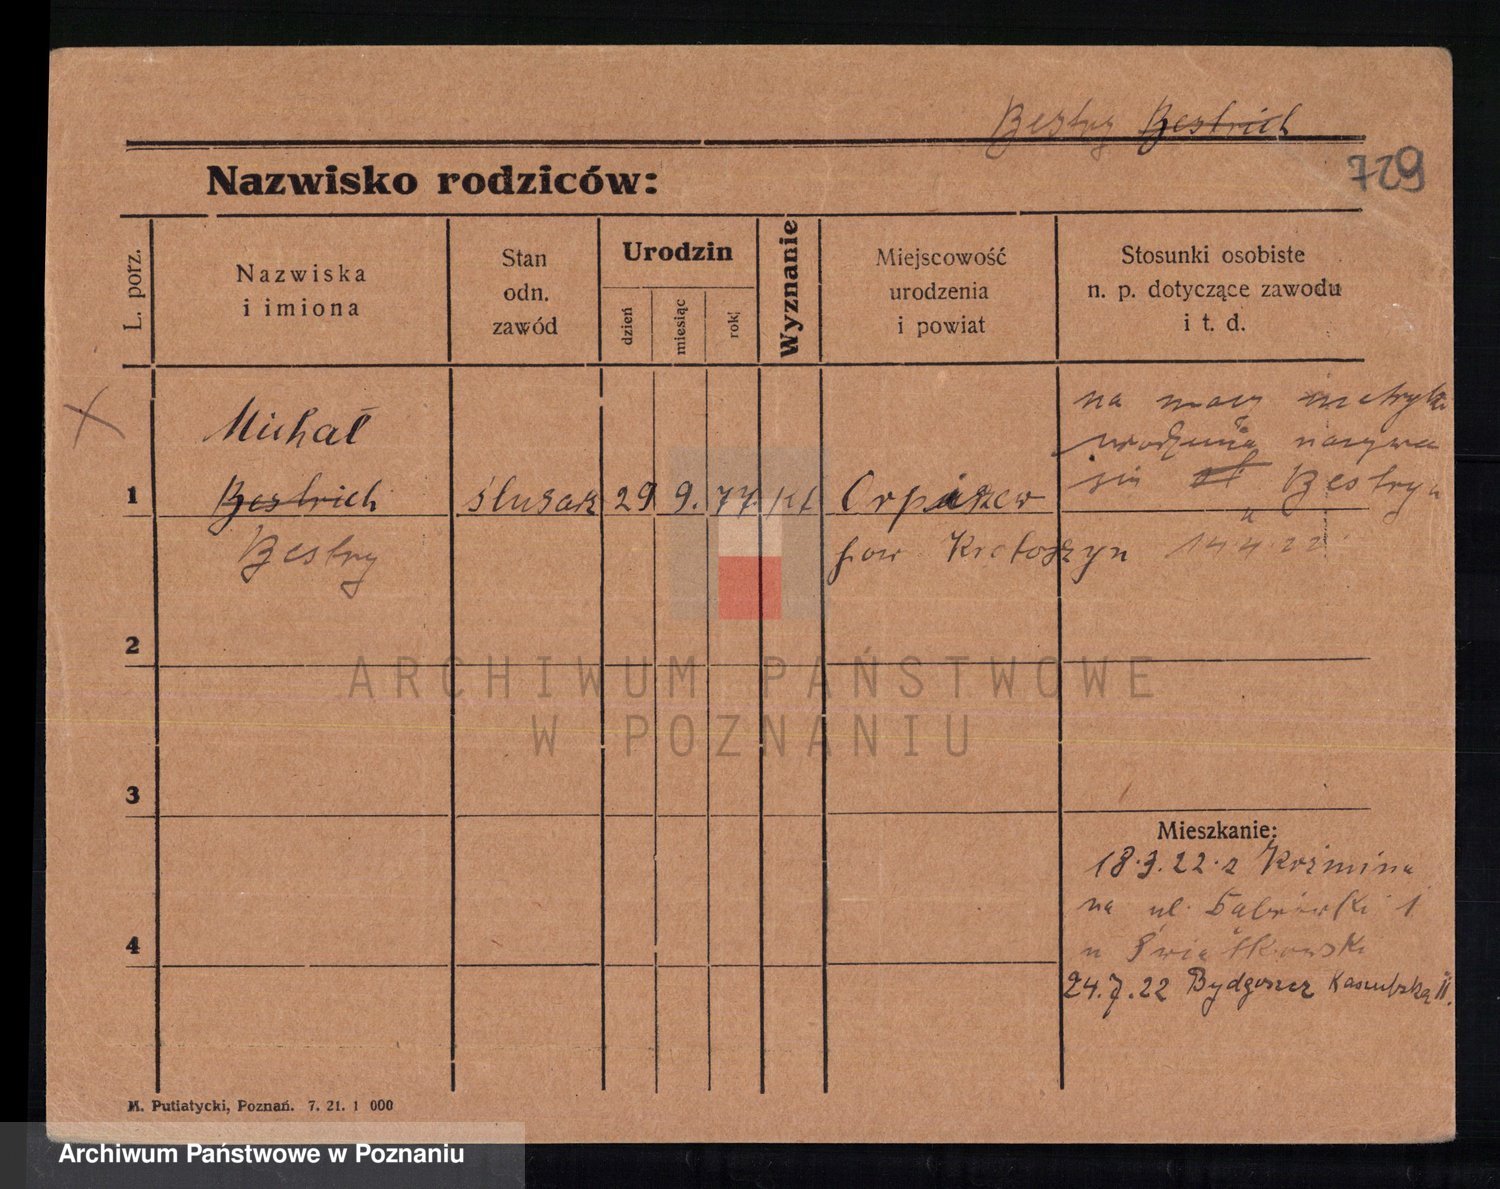 Bestry Bestrich
729
Nazwisko rodziców:
L. porz.
Nazwiska
i imiona
Stan
odn.
zawód
Urodzin
dzień
miesiąc
rok
Wyznanie
Miejscowość
urodzenia
i powiat
Stosunki osobiste
n. p. dotyczące zawodu
i t. d.
1
Michał
Bestrich
Bestry
ślusarz
29 9. 77. kt
Orpiszew
pow Krotoszyn
na mocy metryki
urodzenia nazywa
się Bestry
14.4.22
2
3
4
Mieszkanie:
18.3.22 z Koźmina
na ul. 1
u Świątkowski
24.7.22 Bydgoszcz Kaszubska
M. Putiatycki, Poznań. 7. 21. 1 000
ARCHIWUM PAŃSTWOWE
W POZNANIU
Archiwum Państwowe w Poznaniu